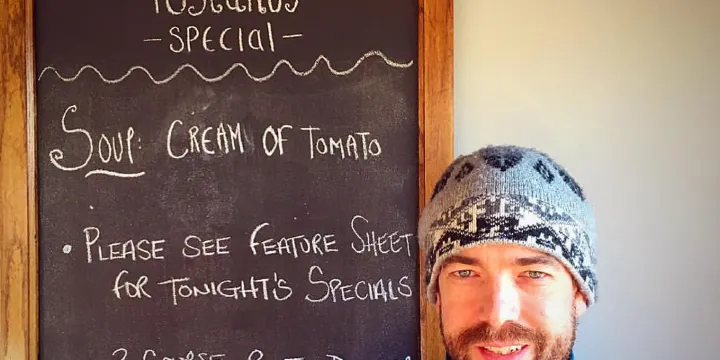 -SPECIAL-
SOUP: CREAM OF TOMATO
• PLEASE SEE FEATURE SHEET
FOR TONIGHT'S SPECIALS